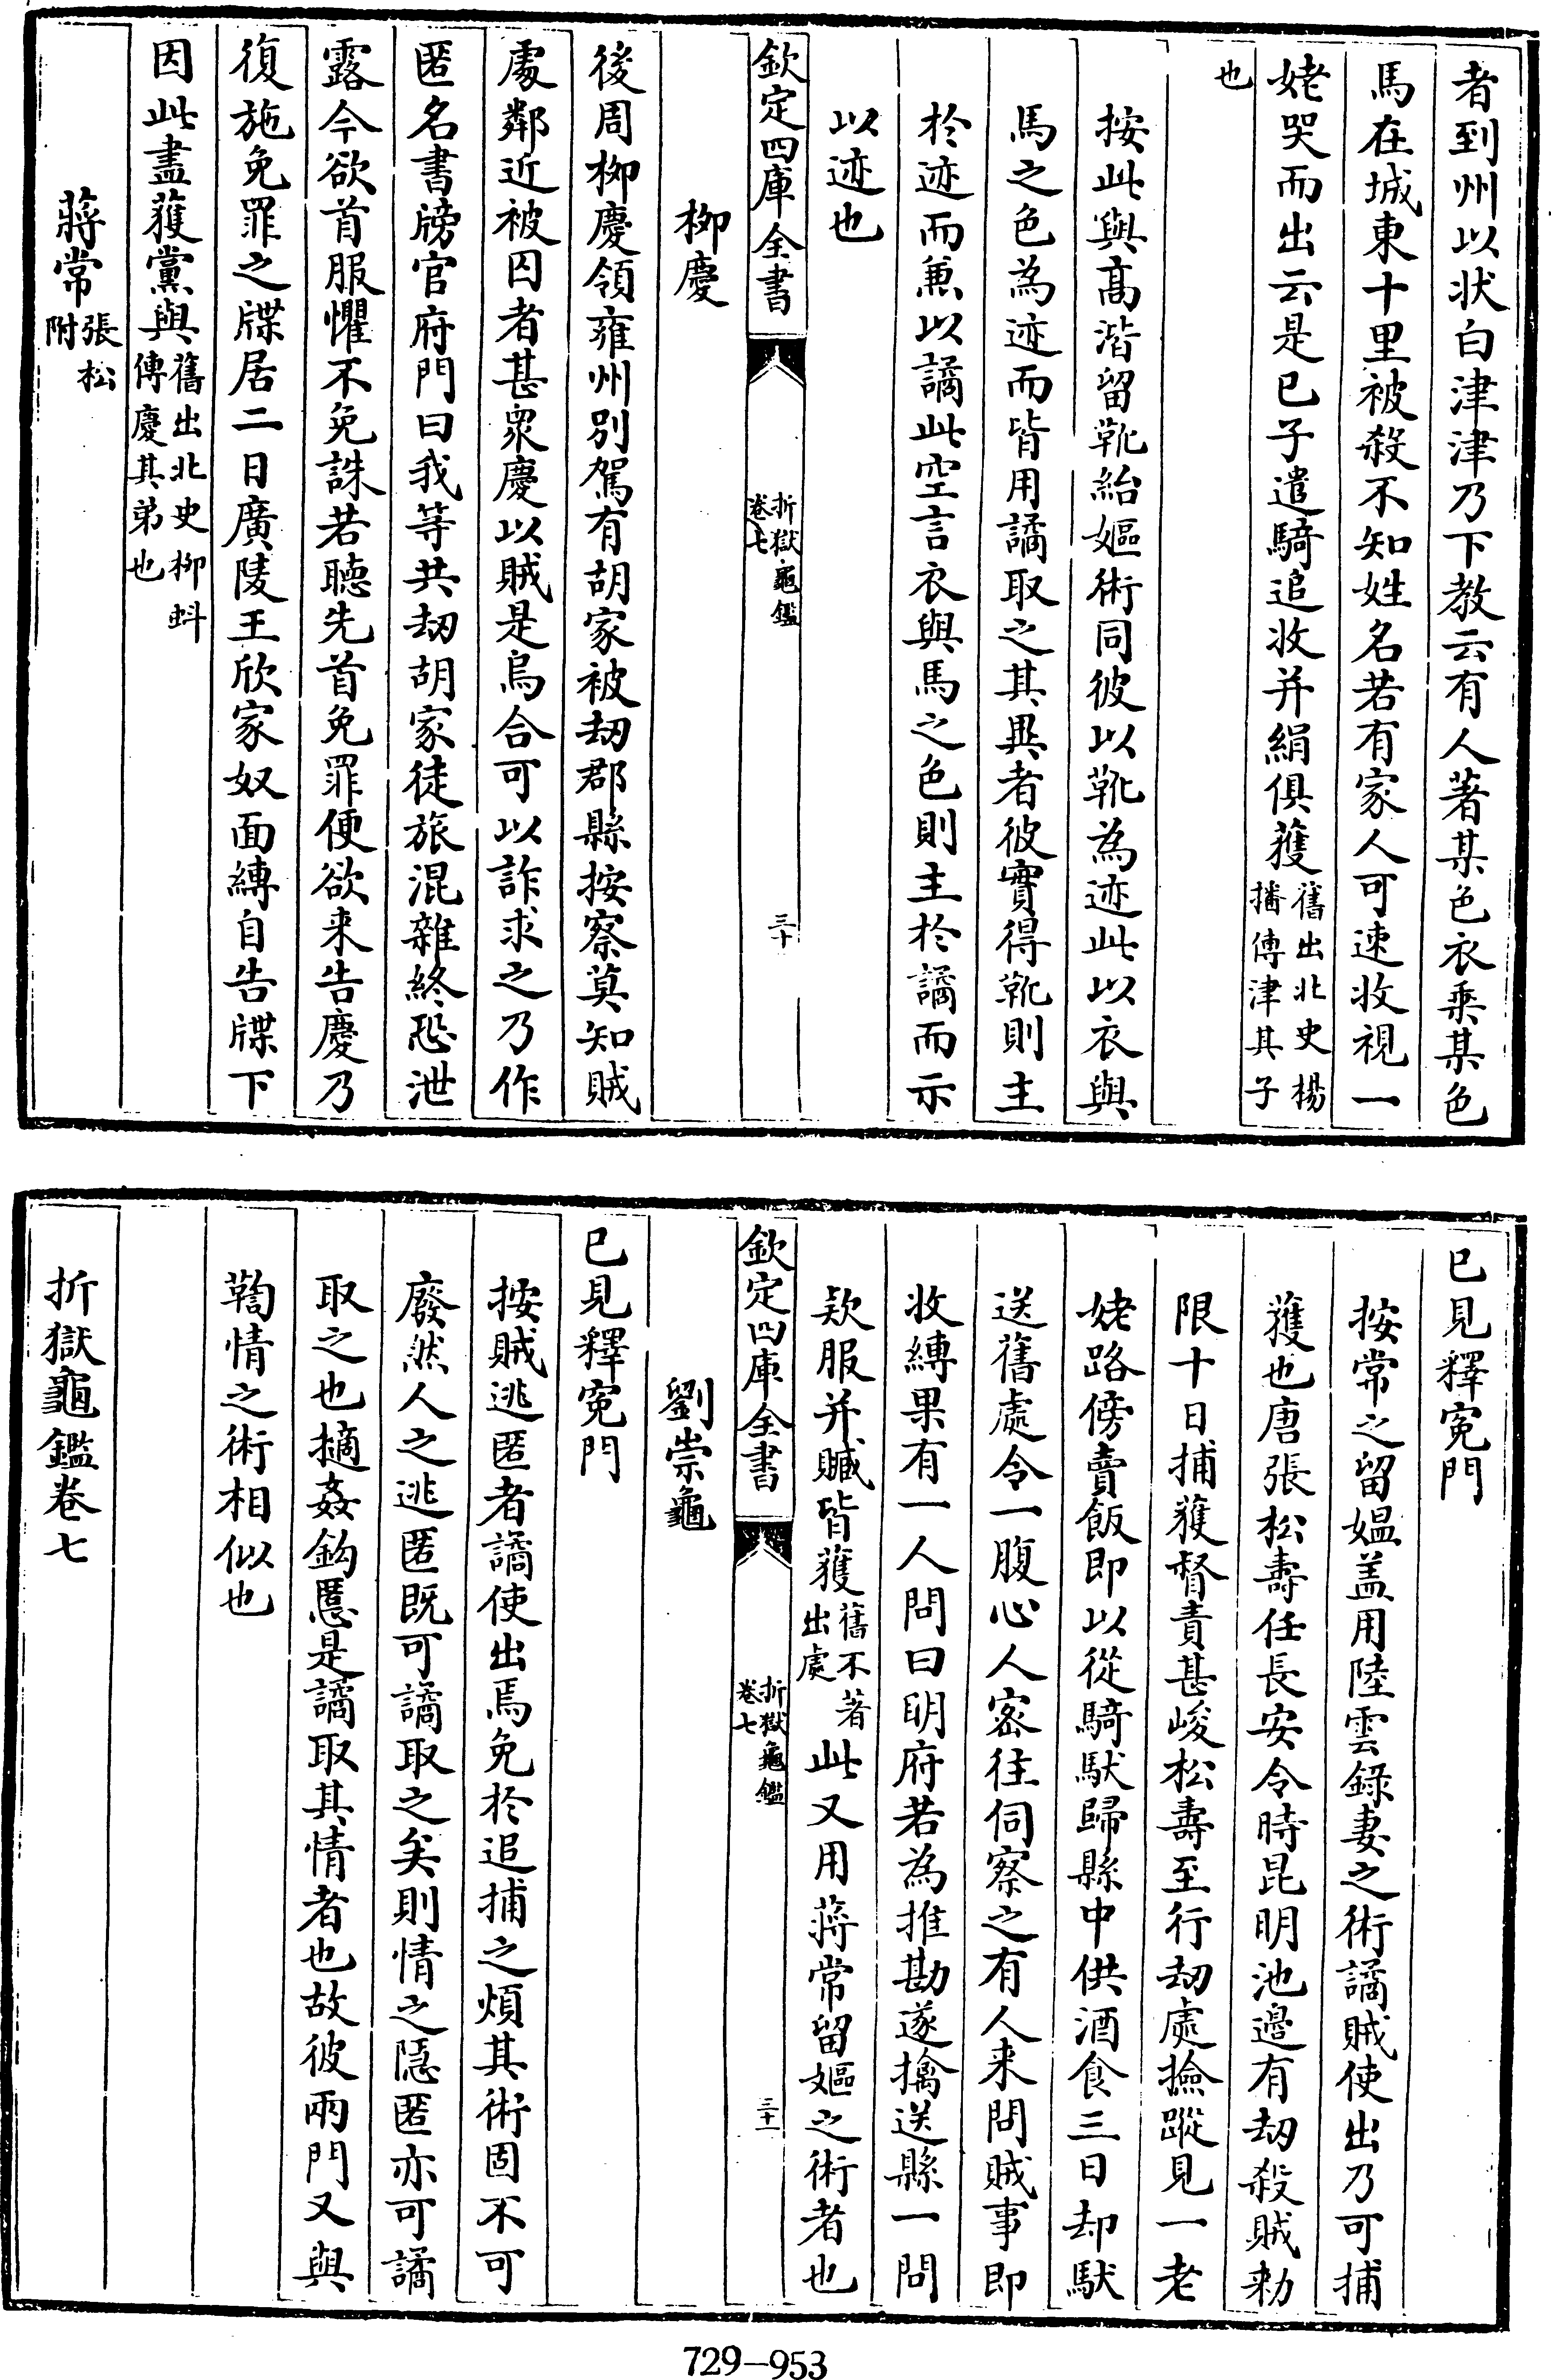 者到州以状白津津乃下教云有人著某色衣乘某色
馬在城東十里被殺不知姓名若有家人可速收視一
姥哭而出云是已子遣騎追收并絹俱獲舊出北史楊
播傳津其子
也
按此與髙湝留靴紿嫗術同彼以靴為迹此以衣與
馬之色為迹而皆用譎取之其異者彼實得靴則主
於迹而兼以譎此空言衣與馬之色則主於譎而示
以迹也
欽定四庫全書
折獄龜鑑
卷七
三十
栁慶
後周栁慶領雍州別駕有胡家被刼郡縣按察莫知賊
處鄰近被囚者甚衆慶以賊是烏合可以詐求之乃作
匿名書牓官府門曰我等共刼胡家徒旅混雜終恐泄
露今欲首服懼不免誅若聽先首免罪便欲来告慶乃
復施免罪之牒居二日廣陵王欣家奴面縛自告牒下
因此盡獲黨與舊出北史栁蚪
傳慶其弟也
蔣常張松
附
已見釋寃門
按常之留媪盖用陸雲錄妻之術譎賊使出乃可捕
獲也唐張松壽任長安令時昆明池邊有刼殺賊勅
限十日捕獲督責甚峻松壽至行刼處撿蹤見一老
姥路傍賣飯即以從騎馱歸縣中供酒食三日却馱
送舊處令一腹心人密往伺察之有人来問賊事即
收縛果有一人問曰明府若為推勘遂擒送縣一問
欵服并贓皆獲舊不著
出處此又用蔣常留嫗之術者也
欽定四庫全書
折獄龜鑑
卷七
三十一
劉崇龜
已見釋寃門
按賊逃匿者譎使出焉免於追捕之煩其術固不可
廢然人之逃匿既可譎取之矣則情之隱匿亦可譎
取之也擿姦鈎慝是譎取其情者也故彼兩門又與
鞫情之術相似也
折獄龜鑑卷七
729-953